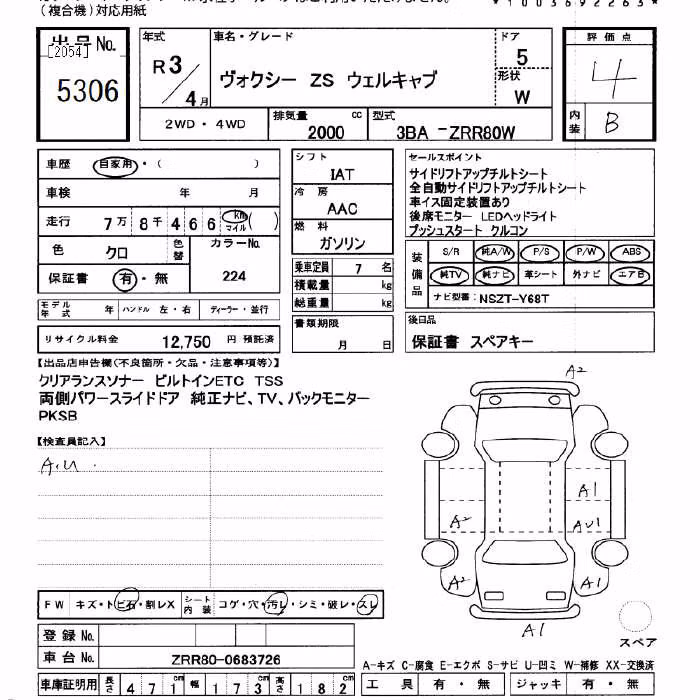 (複合機)対応用紙
*1003692263*
出品No.
[2054]
5306
年式
R3/4月
車名・グレード
ヴォクシー ZS ウェルキャブ
ドア
5
形状
W
評価点
4
内装
B
2WD・4WD
排気量
2000 cc
型式
3BA -ZRR80W
車歴 自家用・( )
車検 年 月
走行 7万8千466 km マイル ( )
色 クロ
色替
カラーNo.
224
保証書 有・無
モデル年式 年 ハンドル 左・右 ディーラー・並行
リサイクル料金 12,750 円 預託済
シフト
IAT
冷房
AAC
燃料
ガソリン
乗車定員 7 名
積載量 kg
総重量 kg
書類期限
月 日
セールスポイント
サイドリフトアップチルトシート
全自動サイドリフトアップチルトシート
車イス固定装置あり
後席モニター LEDヘッドライト
プッシュスタート クルコン
装備品
S/R 純A/W P/S P/W ABS
純TV 純ナビ 革シート 外ナビ エアB
ナビ型番: NSZT-Y68T
後日品
保証書 スペアキー
【出品店申告欄(不良箇所・欠品・注意事項等)】
クリアランスソナー ビルトインETC TSS
両側パワースライドドア 純正ナビ、TV、バックモニター
PKSB
【検査員記入】
A.U.
A2
A1
A2
AU1
A2
A1
A1
スペア
FW キズ・トビ石・割レX シート内装 コゲ・穴・汚レ・シミ・破レ・スレ
登録No.
車台No. ZRR80-0683726
車庫証明用 長さ 471cm 幅 173cm 高さ 182cm
A-キズ C-腐食 E-エクボ S-サビ U-凹ミ W-補修 XX-交換済
工具 有・無 ジャッキ 有・無